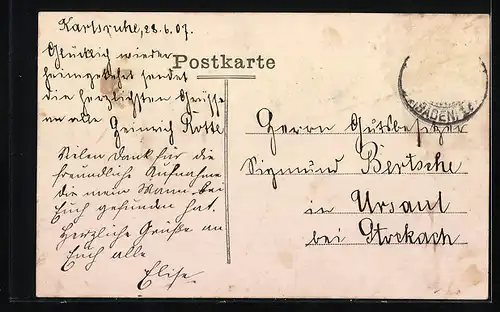 Karlsruhe, 28.6.07.
Glücklich wieder
heimgekehrt sendet
die herzlichsten Grüsse
an alle
Heinrich Rotte
Vielen Dank für die
freundliche Aufnahme
die mein Mann bei
Euch gefunden hat.
Herzliche Grüße an
Euch alle
Elise.
Postkarte
(BADEN)
Herrn Gutsbesitzer
Sigmund Bertsche
in Ursaul
bei Stockach